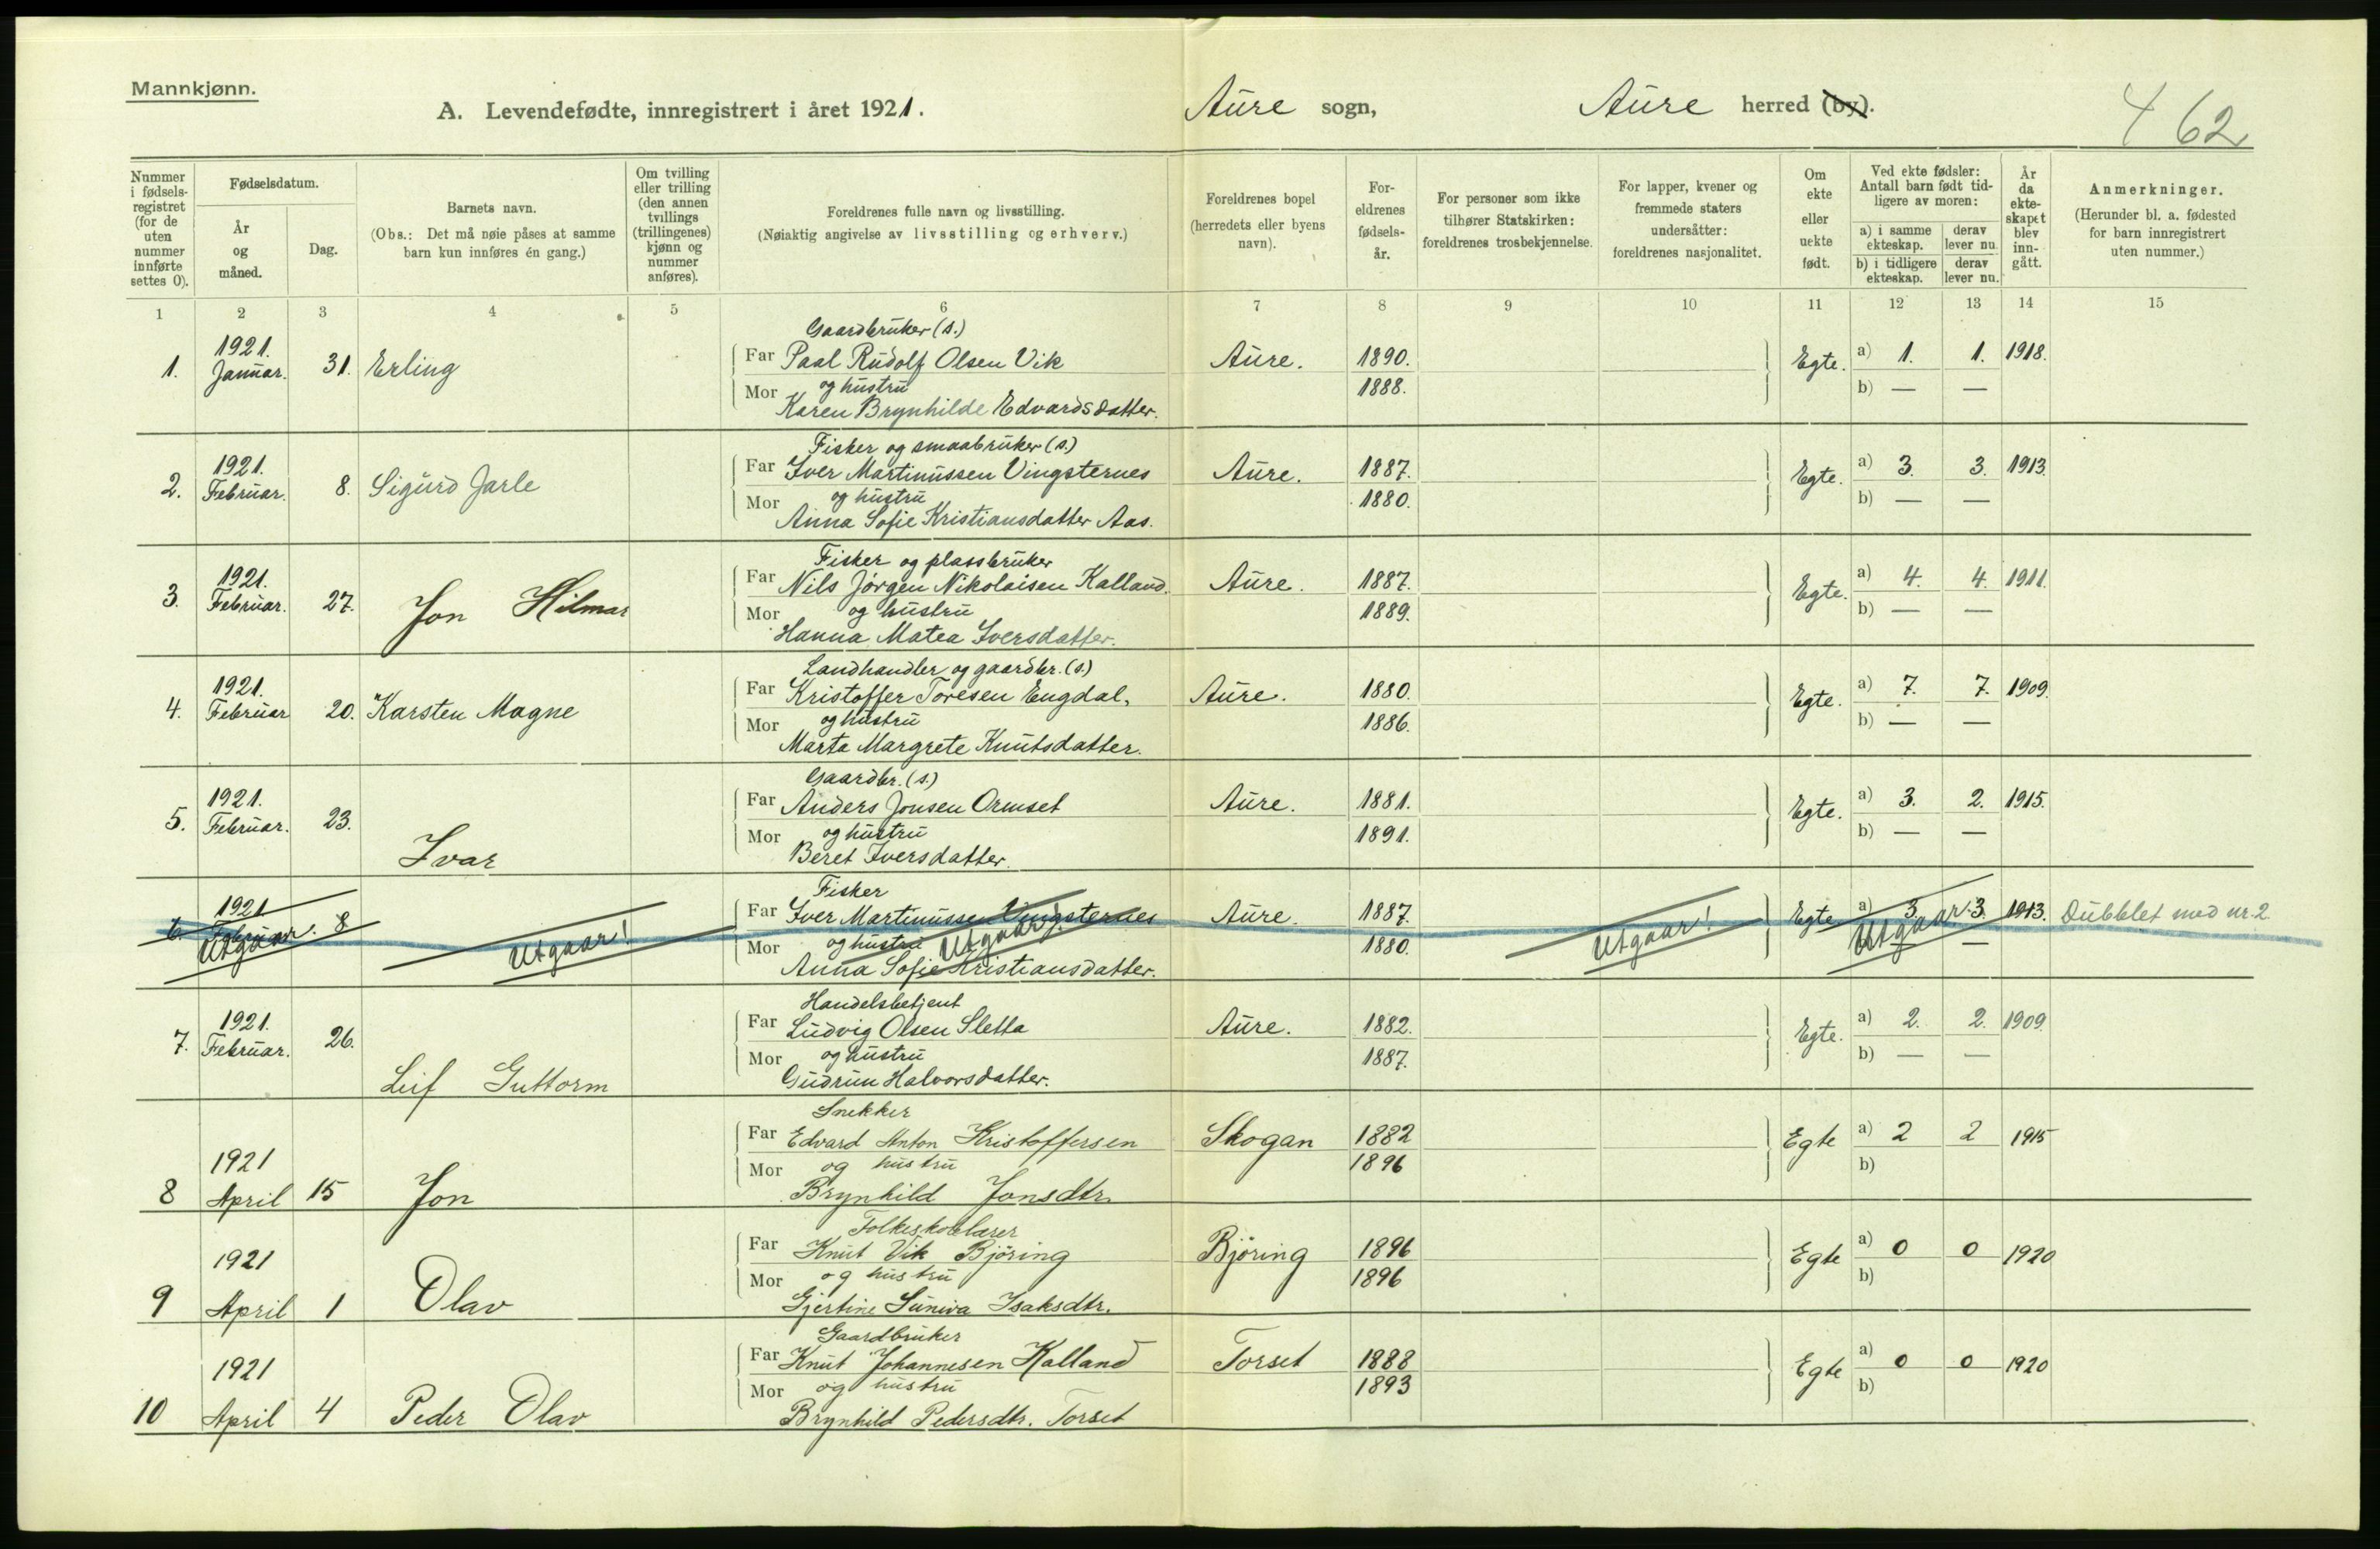 Mannkjønn.
A. Levendefødte, innregistrert i året 1921. Aure sogn, Aure herred (by).
462
Nummer i fødsels-registret (for de uten nummer innførte settes 0).
Fødselsdatum.
År og måned.
Dag.
Barnets navn.
(Obs.: Det må nøie påses at samme barn kun innføres én gang.)
Om tvilling eller trilling (den annen tvillings (trillingenes) kjønn og nummer anføres).
Foreldrenes fulle navn og livsstilling.
(Nøiaktig angivelse av livsstilling og erhverv.)
Foreldrenes bopel (herredets eller byens navn).
For-eldrenes fødsels-år.
For personer som ikke tilhører Statskirken: foreldrenes trosbekjennelse.
For lapper, kvener og fremmede staters undersåtter: foreldrenes nasjonalitet.
Om ekte eller uekte født.
Ved ekte fødsler: Antall barn født tid-ligere av moren:
a) i samme ekteskap. derav lever nu.
b) i tidligere ekteskap. derav lever nu.
År da ekte-skapet blev inn-gått.
Anmerkninger.
(Herunder bl. a. fødested for barn innregistrert uten nummer.)
1 2 3 4 5 6 7 8 9 10 11 12 13 14 15
Gaardbruker (s.)
1. 1921. Januar. 31. Erling Far Paal Rudolf Olsen Vik Aure. 1890. Egte. a) 1. 1. 1918.
Mor og hustru 1888. b) — —
Karen Brynhilde Edvardsdatter.
Fisker og smaabruker (s.)
2. 1921. Februar. 8. Sigurd Jarle Far Iver Martinussen Vingsternes Aure. 1887. Egte. a) 3. 3. 1913.
Mor og hustru 1880. b) — —
Anna Sofie Kristiansdatter Aas.
Fisker og plassbruker
3. 1921. Februar. 27. Jon Hilmar Far Nils Jørgen Nikolaisen Kalland. Aure. 1887. Egte. a) 4. 4. 1911.
Mor og hustru 1889. b) — —
Hanna Matea Iversdatter.
Landhandler og gaardbr. (s.)
4. 1921. Februar 20. Karsten Magne Far Kristoffer Toresen Engdal, Aure. 1880. Egte. a) 7. 7. 1909.
Mor og hustru 1886. b) — —
Marta Margrete Knutsdatter.
Gaardbr. (s.)
5. 1921. Februar. 23. Ivar Far Anders Jonsen Ormset Aure. 1881. Egte. a) 3. 2. 1915.
Mor og hustru 1891. b) — —
Beret Iversdatter.
Fisker
6. 1921 Februar. 8 Far Iver Martinussen Vingsternes Aure. 1887. Egte a) 3. 3. 1913. Dubblet med nr. 2.
Utgaar. Utgaar! Mor og hustru Utgaar! 1880. Utgaar! Utgaar. —
Anna Sofie Kristiansdatter.
Handelsbetjent
7. 1921. Februar. 26. Leif Guttorm Far Ludvig Olsen Sletta Aure. 1882. Egte. a) 2. 2. 1909.
Mor og hustru 1887. b) — —
Gudrun Halvorsdatter.
Snekker
8 1921 April 15 Jon Far Edvard Anton Kristoffersen Skogan 1882 Egte a) 2 2 1915
Mor og hustru 1896 b)
Brynhild Jonsdtr.
Folkeskolelærer
9 1921 April 1 Olav Far Knut Vik Bjøring Bjøring 1896 Egte a) 0 0 1920
Mor og hustru 1896 b)
Gjertine Suniva Isaksdtr.
Gaardbruker
10 1921 April 4 Peder Olav Far Knut Johannesen Kalland Torset 1888 Egte a) 0 0 1920
Mor og hustru 1893 b)
Brynhild Pedersdtr. Torset